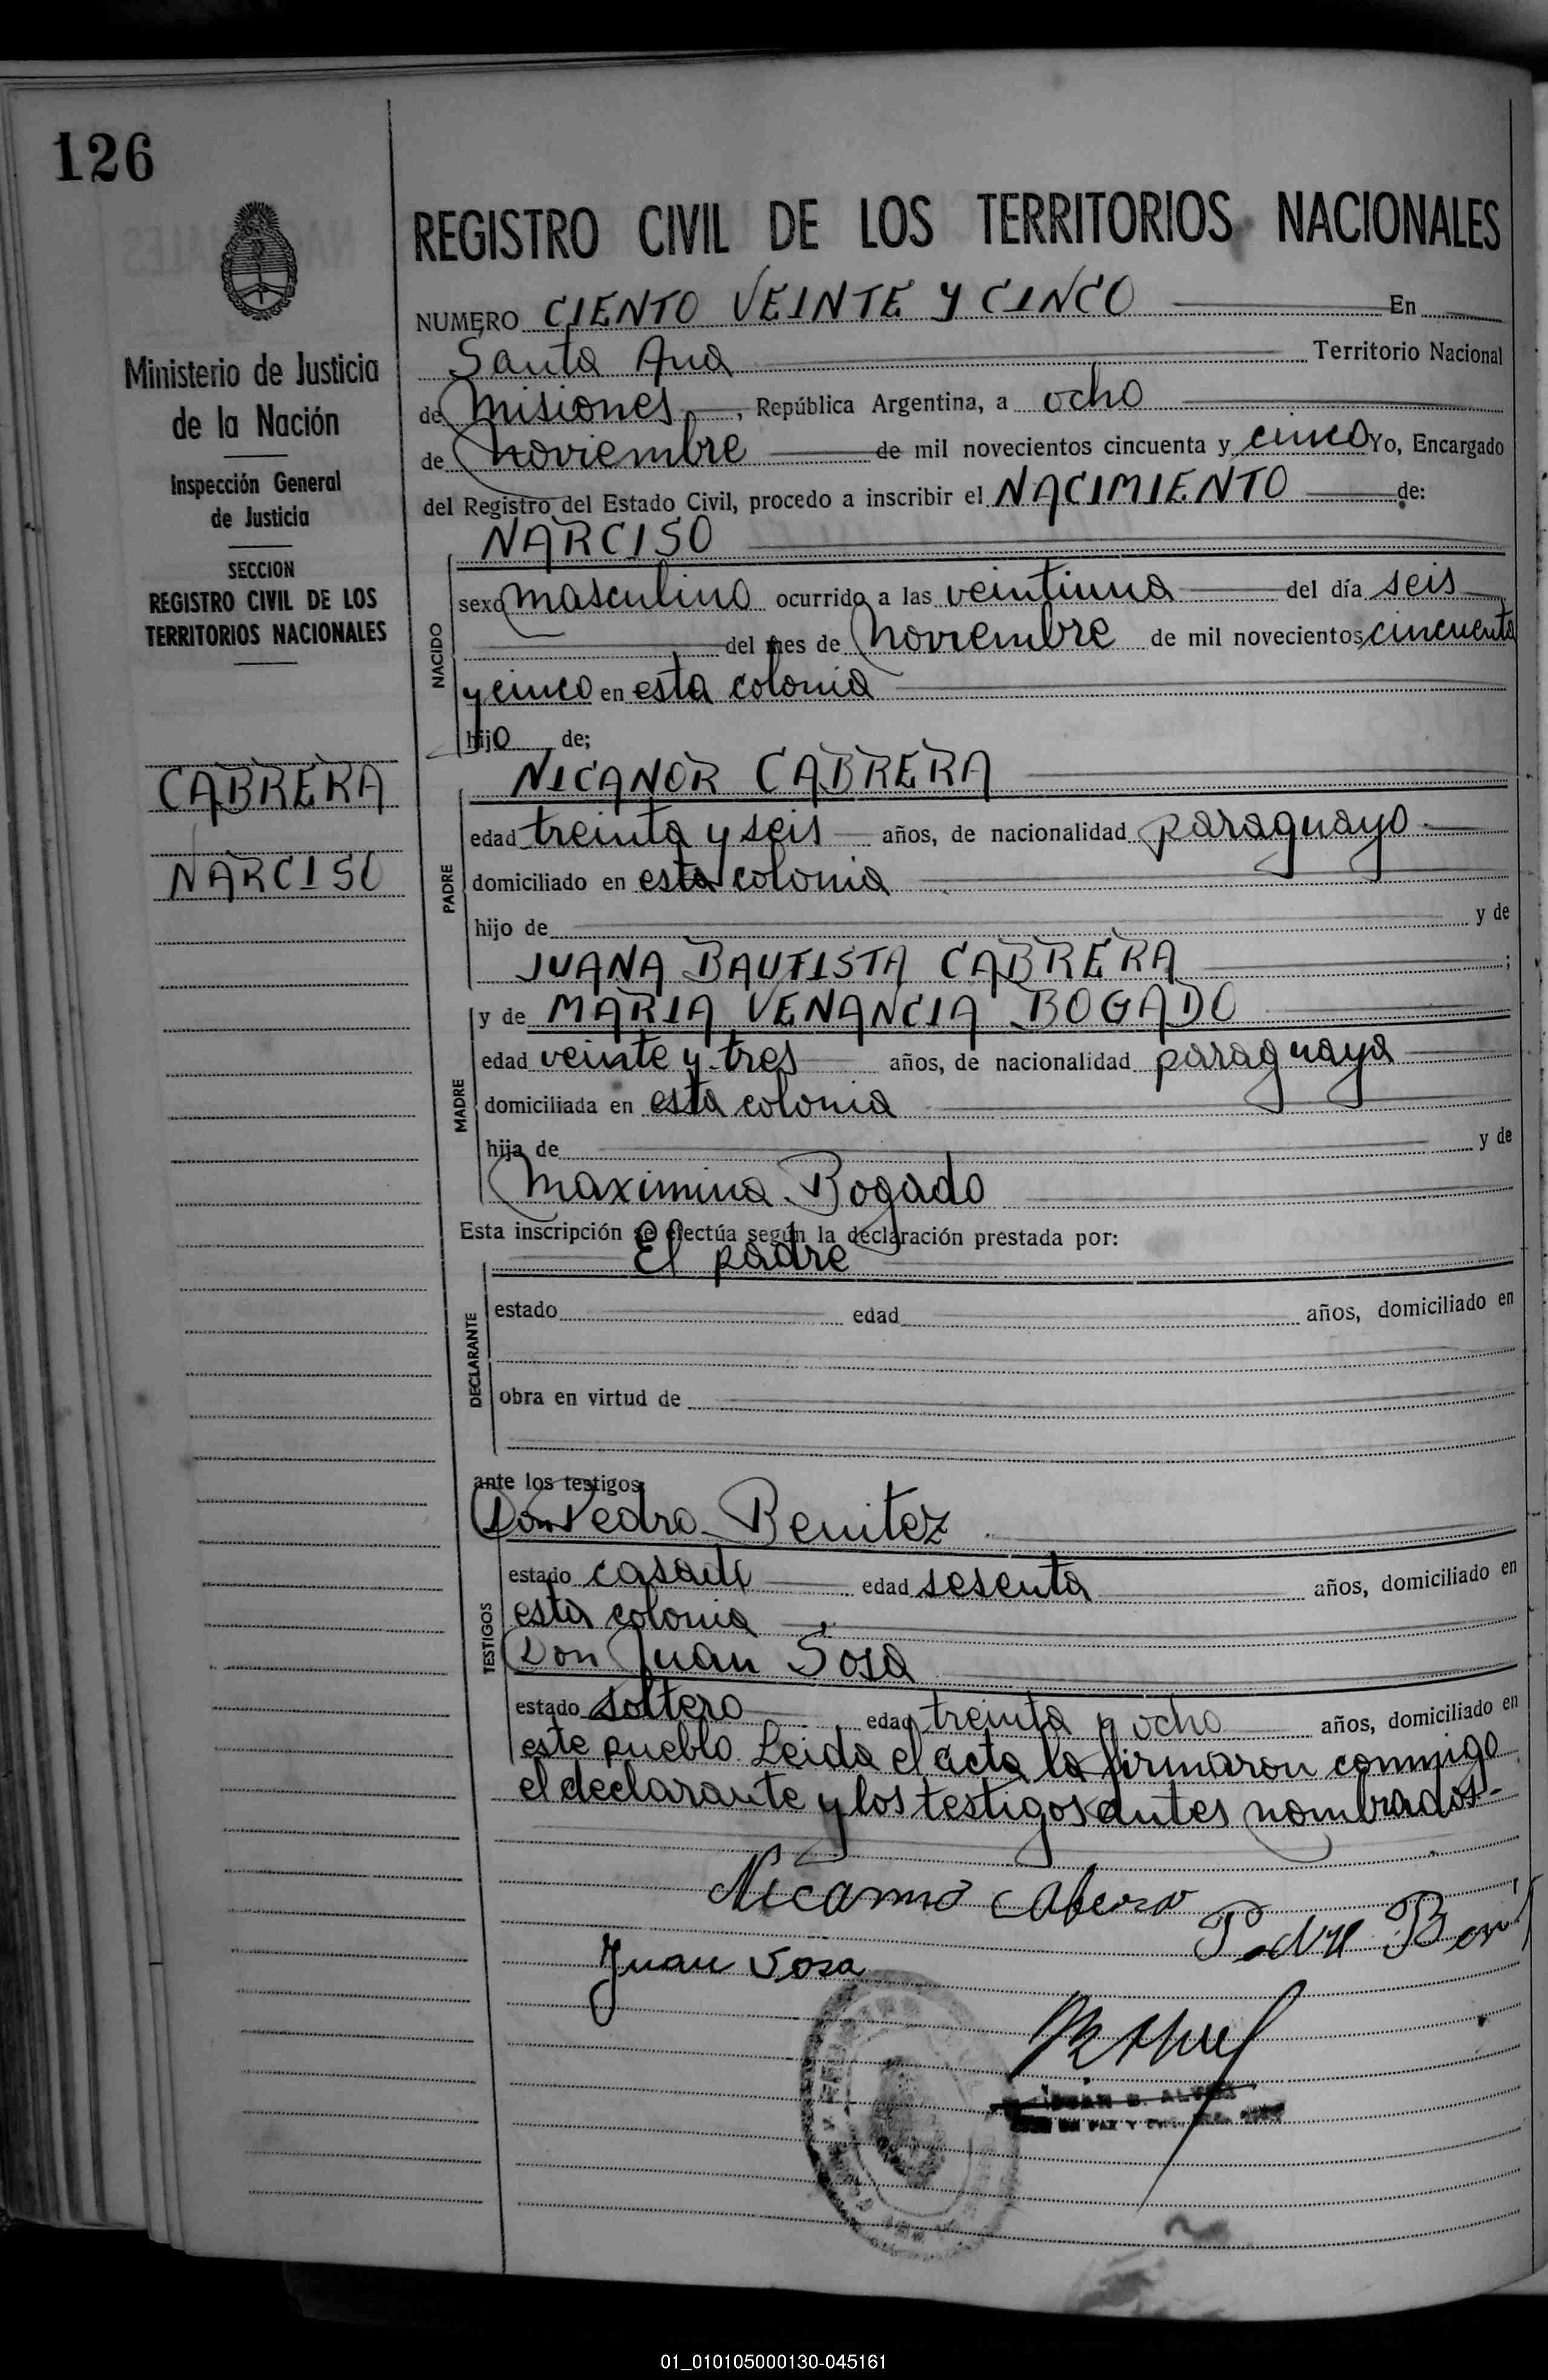 126
REGISTRO CIVIL DE LOS TERRITORIOS NACIONALES
NUMERO CIENTO VEINTE Y CINCO En
Santa Ana Territorio Nacional
de Misiones, República Argentina, a ocho
de noviembre de mil novecientos cincuenta y cinco Yo, Encargado
del Registro del Estado Civil, procedo a inscribir el NACIMIENTO de:
Ministerio de Justicia
de la Nación
Inspección General
de Justicia
SECCION
REGISTRO CIVIL DE LOS
TERRITORIOS NACIONALES
CABRERA
NARCISO
NACIDO
NARCISO
sexo masculino ocurrido a las veintiuna del día seis
del mes de noviembre de mil novecientos cincuenta
y cinco en esta colonia
hijo de;
PADRE
NICANOR CABRERA
edad treinta y seis años, de nacionalidad paraguayo
domiciliado en esta colonia
hijo de y de
JUANA BAUTISTA CABRERA ;
MADRE
y de MARIA VENANCIA BOGADO
edad veinte y tres años, de nacionalidad paraguaya
domiciliada en esta colonia
hija de y de
Maximina Bogado
Esta inscripción se efectúa según la declaración prestada por:
El padre
DECLARANTE
estado edad años, domiciliado en
obra en virtud de
ante los testigos
Don Pedro Benitez
TESTIGOS
estado casado edad sesenta años, domiciliado en
esta colonia
Don Juan Sosa
estado soltero edad treinta y ocho años, domiciliado en
este pueblo. Leida el acta la firmaron conmigo
el declarante y los testigos antes nombrados-
Juan Sosa
01_010105000130-045161